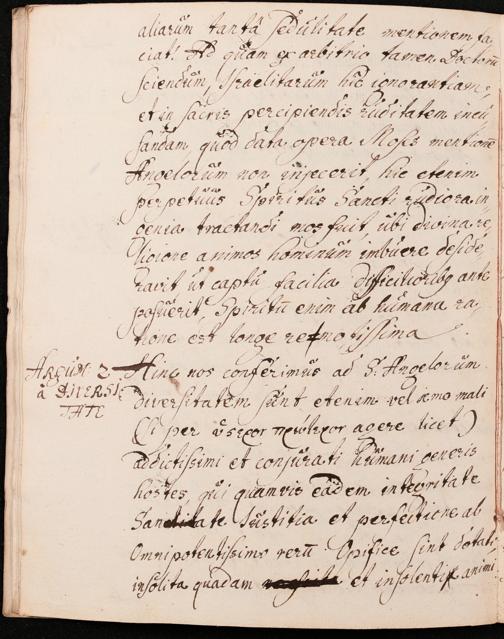 aliarum tantâ sedulitate mentionem fa
ciat? Ad quam ex arbitrio tamen Doctorũ
sciendum, Israelitarum hic ignorantiam,
et in sacris percipiendis ruditatem incu
sandam, quod data opera Moses mentionẽ
Angelorum non injecerit, hic etenim
perpetuus Spiritus Sancti rudiora in
genia tractandi mos fuit, ubi divina re
ligione animos hominum imbuere deside
ravit ut captu facilia difficilioribq ante
posuerit, Spirituũ enim ab humana ra
tione est longe remotissima
ARGUM: 2
à DIVERSI
TATE
Hinc nos conferimus ad S. Angelorum
Diversitatem sunt etenim vel iemo mali
(si per ὕστερον πρωτερον agere licet)
addictissimi et conjurati humani generis
hostes, qui quamvis eâdem integritate
Sanctitate Justitia et perfectione ab
Omnipotentissimo rerũ Opifice sint dotati
insolita quadam et insolenti animi